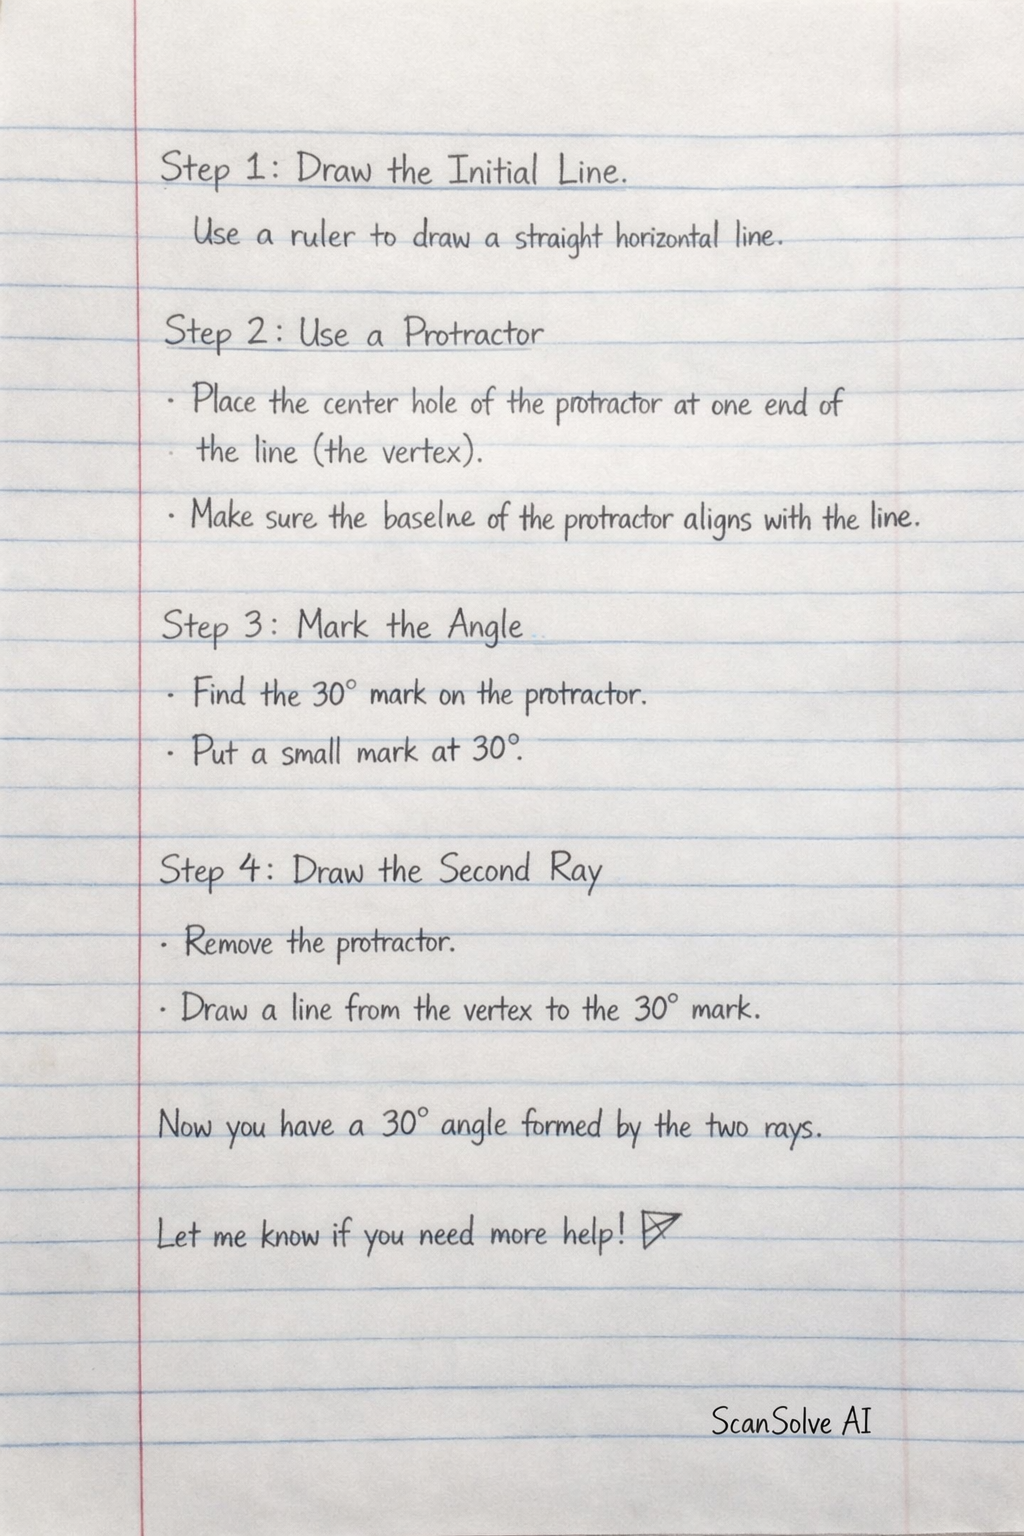 Step 1: Draw the Initial Line.
Use a ruler to draw a straight horizontal line.
Step 2: Use a Protractor
· Place the center hole of the protractor at one end of
· the line (the vertex).
· Make sure the baselne of the protractor aligns with the line.
Step 3: Mark the Angle
· Find the 30° mark on the protractor.
· Put a small mark at 30°.
Step 4: Draw the Second Ray
· Remove the protractor.
· Draw a line from the vertex to the 30° mark.
Now you have a 30° angle formed by the two rays.
Let me know if you need more help!
ScanSolve AI